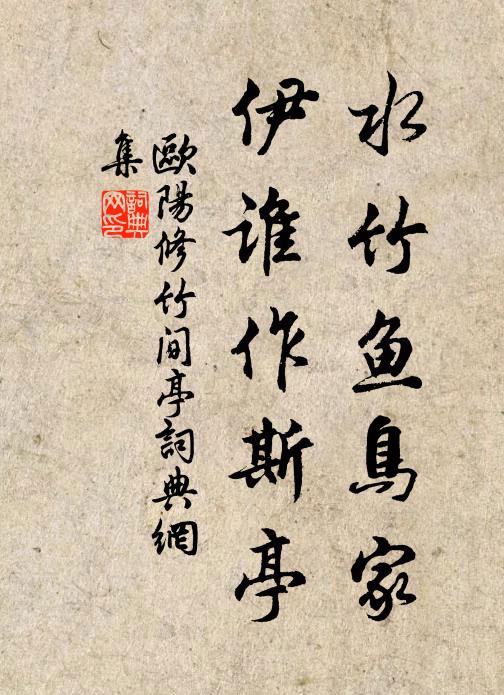 水竹鱼鳥家
伊谁作斯亭
歐陽修竹间亭詞典網
集
詞典
网印